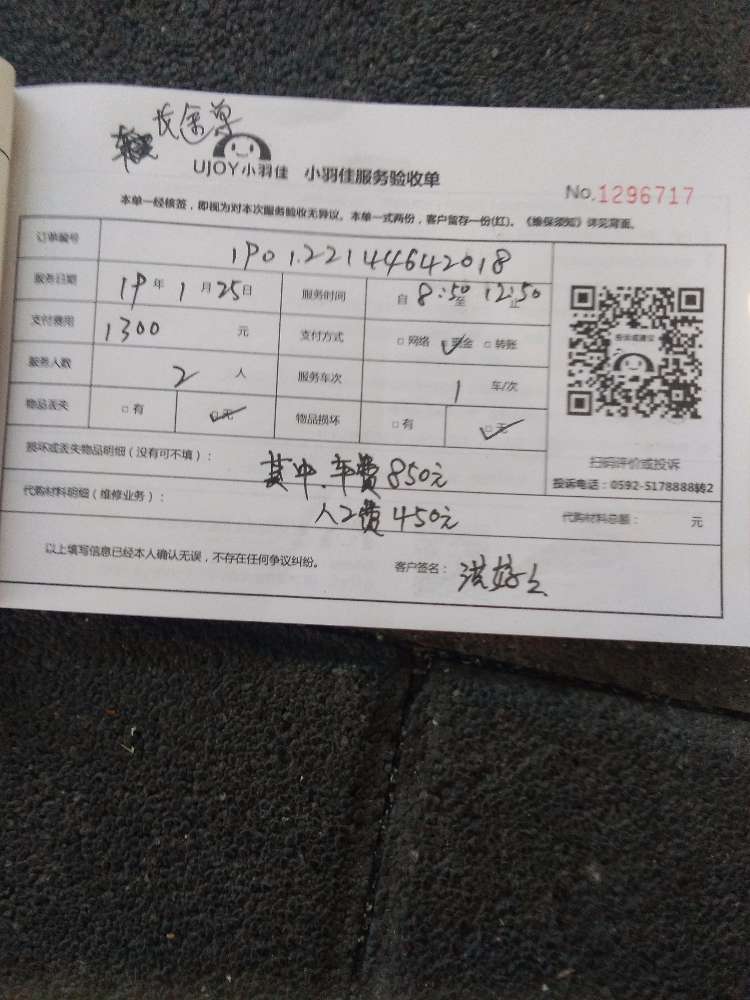 长途单
UJOY小羽佳 小羽佳服务验收单
No.1296717
本单一经核签，即视为对本次服务验收无异议。本单一式两份，客户留存一份(红)。《维保须知》详见背面。
订单编号 1901.22144642018
服务日期 19年1月25日 服务时间 自8:50至12:50止
支付费用 1300 元 支付方式 □网络 ☑现金 □转账
服务人数 2 人 服务车次 1 车/次
物品丢失 □有 ☑无 物品损坏 □有 ☑无
投诉或建议
扫码评价或投诉
投诉电话：0592-5178888转2
损坏或丢失物品明细（没有可不填）：
其中.车费850元
代购材料明细（维修业务）： 代购材料总额： 元
人工费450元
以上填写信息已经本人确认无误，不存在任何争议纠纷。 客户签名：